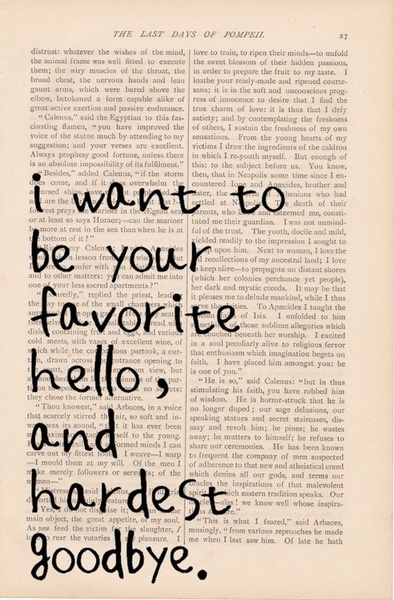 THE LAST DAYS OF POMPEII.
27
i want to
be your
favorite
hello,
and
hardest
goodbye.
distrust: whatever the wishes of the mind,
the animal frame was well fitted to execute
them; the wiry muscles of the throat, the
broad chest, the nervous hands and lean
gaunt arms, which were bared above the
elbow, betokened a form capable alike of
great active exertion and passive endurance.
" Calenus," said the Egyptian to this fas-
cinating flamen, " you have improved the
voice of the statue much by attending to my
suggestion; and your verses are excellent.
Always prophesy good fortune, unless there
is an absolute impossibility of its fulfilment."
" Besides," added Calenus, " if the storm
does come, and if it does overwhelm the
or at least as says Horace;—can the mariner
more at rest in the sea than when he is at
bottom of it?"
replied the priest,
they chose the former alternative.
" Thou knowest," said Arbaces, in a voice
that scarcely stirred the air, so soft and in-
—I mould them at my will. Of the men I
main object, the great appetite, of my soul.
love to train, to ripen their minds—to unfold
the sweet blossom of their hidden passions,
in order to prepare the fruit to my taste. I
loathe your ready-made and ripened courte-
sans; it is in the soft and unconscious prog-
ress of innocence to desire that I find the
true charm of love: it is thus that I defy
satiety; and by contemplating the freshness
of others, I sustain the freshness of my own
sensations. From the young hearts of my
victims I draw the ingredients of the caldron
in which I re-youth myself. But enough of
this; to the subject before us. You know,
then, that in Neapolis some time since I en-
countered Ione and Apæcides, brother and
tuted me their guardian. I was not unmind-
ful of the trust. The youth, docile and mild,
yielded readily to the impression I sought to
upon him. Next to woman, I love the
recollections of my ancestral land; I love
to keep alive—to propagate on distant shores
(which her colonies perchance yet people),
her dark and mystic creeds. It may be that
it pleases me to delude mankind, while I thus
serve the deities. To Apæcides I taught the
of Isis. I unfolded to him
those sublime allegories which
are couched beneath her worship. I excited
in a soul peculiarly alive to religious fervor
that enthusiasm which imagination begets on
faith. I have placed him amongst you: he
is one of you."
" He is so," said Calenus: " but in thus
stimulating his faith, you have robbed him
of wisdom. He is horror-struck that he is
no longer duped; our sage delusions, our
speaking statues and secret staircases, dis-
may and revolt him; he pines; he wastes
away; he mutters to himself; he refuses to
share our ceremonies. He has been known
to frequent the company of men suspected
of adherence to that new and atheistical creed
which denies all our gods, and terms our
oracles the inspirations of that malevolent
spirit of which eastern tradition speaks. Our
oracles—alas! we know well whose inspira-
" This is what I feared," said Arbaces,
musingly, " from various reproaches he made
me when I last saw him. Of late he hath